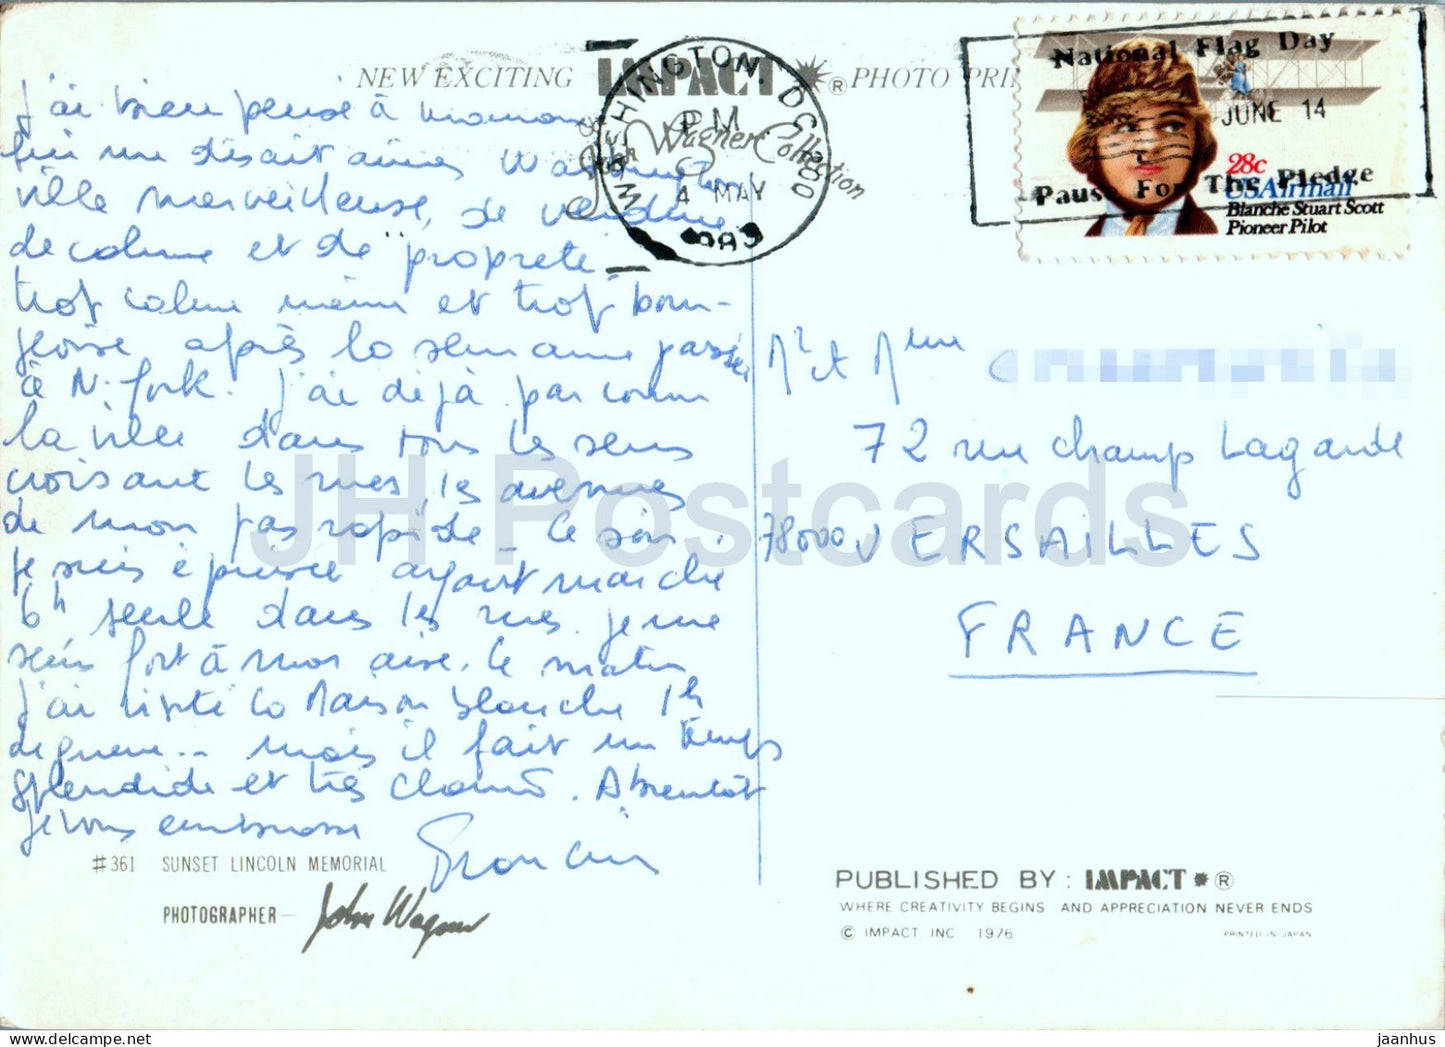 NEW EXCITING IMPACT ® PHOTO PRI
John Wagner Collection
WASHINGTON, DC 200
PM
4 MAY
1983
National Flag Day
JUNE 14
Pause For The Pledge
28c
USAirmail
Blanche Stuart Scott
Pioneer Pilot
j'ai bien pensé à maman
qui me disait aimer Washington
ville merveilleuse, de verdure
de calme et de "propreté.
trop calme même et trop bour-
geoise après la semaine passée
à N. York. J'ai déjà parcouru
la ville dans tous les sens
croisant les rues, les avenues
de mon pas rapide - Ce soir,
je suis épuisée ayant marché
6h seule dans les rues. je me
sens fort à mon aise. Ce matin
j'ai visité la Maison blanche 1h
de queue... mais il fait un temps
splendide et très chaud. A bientôt
je vous embrasse
M et Mme
72 rue champ Lagarde
78000 VERSAILLES
FRANCE
JH Postcards
#361 SUNSET LINCOLN MEMORIAL
PHOTOGRAPHER— John Wagner
PUBLISHED BY: IMPACT ®
WHERE CREATIVITY BEGINS AND APPRECIATION NEVER ENDS
© IMPACT, INC 1976
PRINTED IN JAPAN
HipPostcard.com
jaanhus